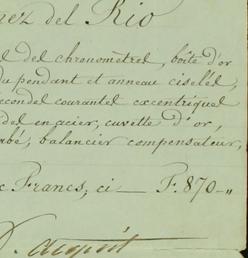 nez del Rio
del chronomètre, boîte d'or
du pendant et anneau ciselés,
seconde courante excentrique
en acier, cuvette d'or,
balancier compensateur,
Francs, ci — F. 870 - "